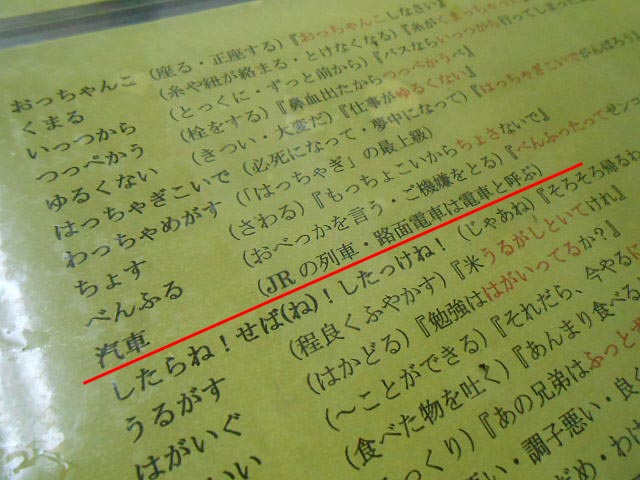 おっちゃんこ (座る・正座する)『おっちゃんこしなさい』
くまる (糸や紐が絡まる・とけなくなる)『糸がくまっちゃった
いっつから (とっくに・ずっと前から)『バスならいっつから行ってしまった
つっぺかう (栓をする)『鼻血出たからつっぺかうべ』
ゆるくない (きつい・大変だ)『仕事がゆるくない』
はっちゃぎこいで (必死になって・夢中になって)『はっちゃぎこいでがんばろう』
わっちゃめがす (「はっちゃぎ」の最上級)
ちょす (さわる)『もっちょこいからちょさないで』
べんふる (おべっかを言う・ご機嫌をとる)『べんふったってゼン
汽車 (JRの列車・路面電車は電車と呼ぶ)
したらね！せば(ね)！したっけね！ (じゃあね)『そろそろ帰るわ
うるがす (程良くふやかす)『米うるがしといてけれ』
はがいぐ (はかどる)『勉強ははがいってるか？』
いい (～ことができる)『それだら、今やる
(食べた物を吐く)『あんまり食べる
っくり)『あの兄弟はふっと
い・調子悪い・良
だめ・わ